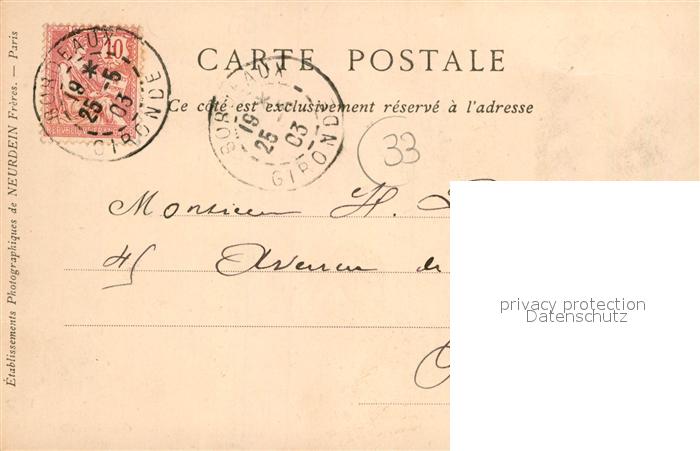 CARTE POSTALE
Ce côté est exclusivement réservé à l'adresse
10
RÉPUBLIQUE FRANÇAISE
BORDEAUX
19
25 -5
03
GIRONDE
BORDEAUX
19
25
03
GIRONDE
33
Monsieur H.
45 Avenue de
privacy protection
Datenschutz
Établissements Photographiques de NEURDEIN Frères. — Paris